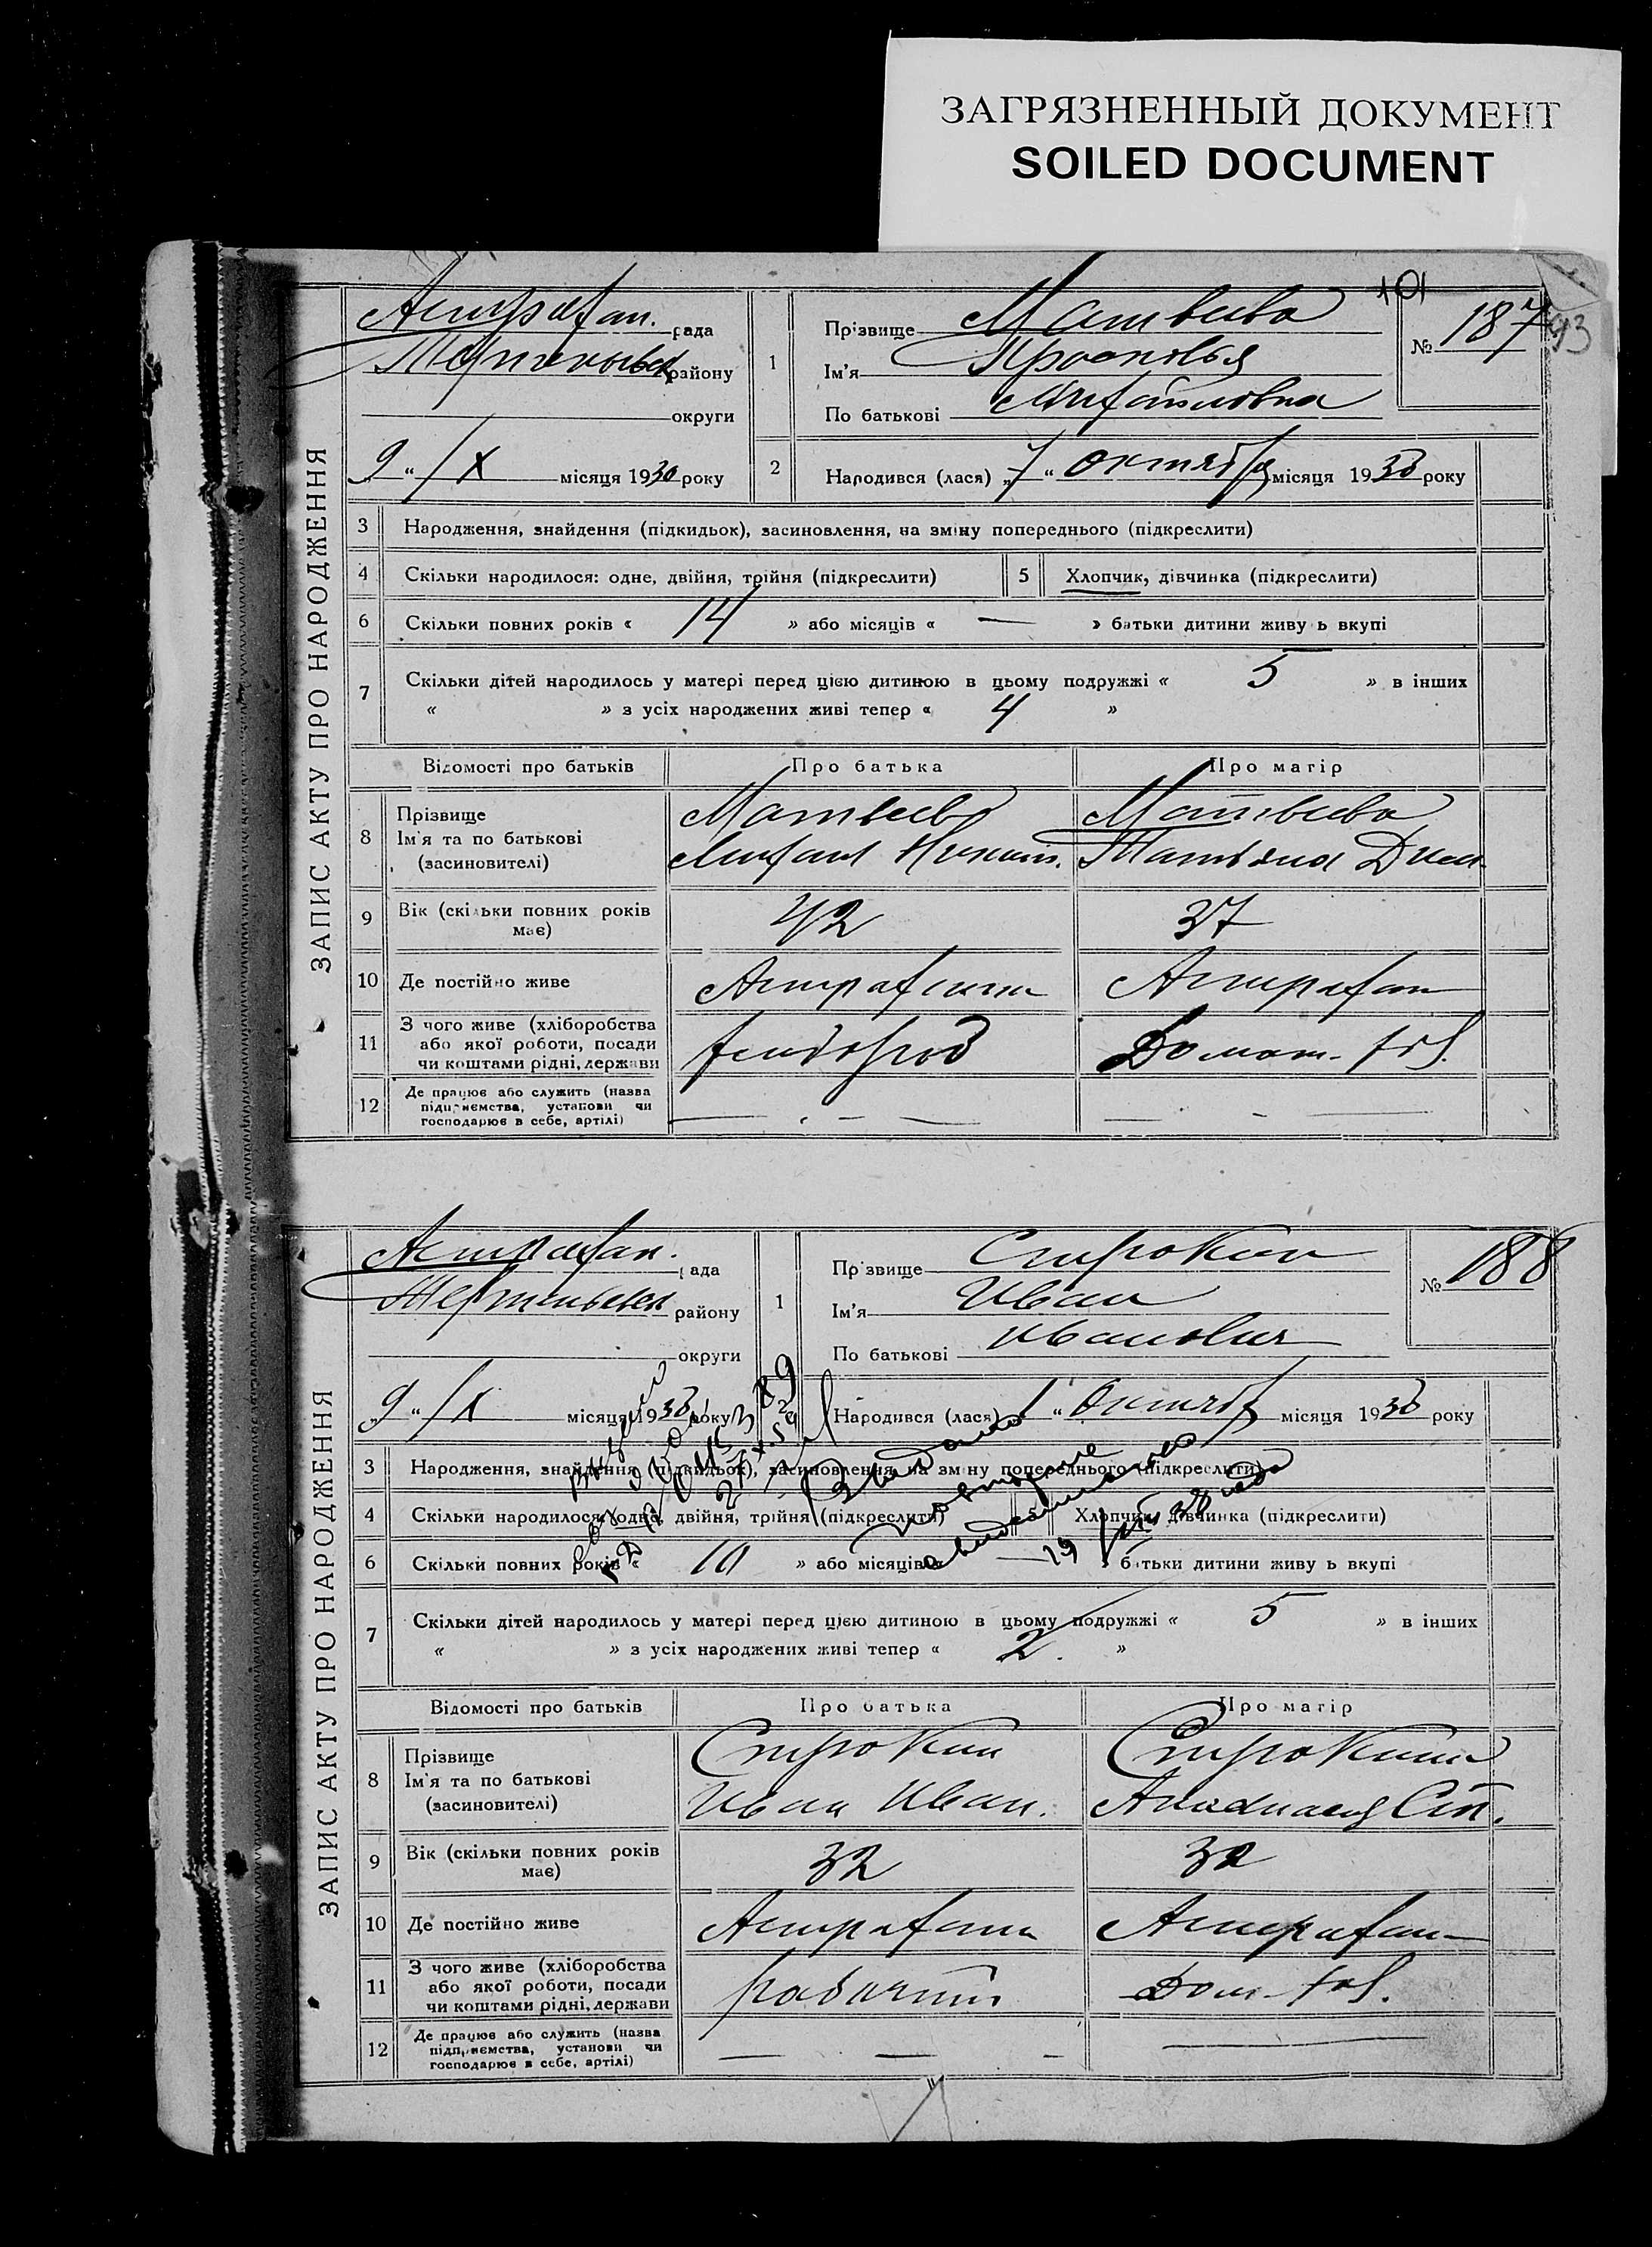 ЗАГРЯЗНЕННЫЙ ДОКУМЕНТ
SOILED DOCUMENT
101
93
ЗАПИС АКТУ ПРО НАРОДЖЕННЯ
Астрахан. рада
району
округи
9 " /X місяця 1930 року
1
Прізвище Матвеева
Ім'я Прасковья
По батькові Михайловна
№ 187
2 Народився (лася) „7 " октября місяця 1930 року
3 Народження, знайдення (підкидьок), засиновлення, на зміну попереднього (підкреслити)
4 Скільки народилося: одне, двійня, трійня (підкреслити) 5 Хлопчик, дівчинка (підкреслити)
6 Скільки повних років « 14 » або місяців « — » батьки дитини живу ь вкупі
7 Скільки дітей народилось у матері перед цією дитиною в цьому подружжі « 5 » в інших
« » з усіх народжених живі тепер « 4 »
Відомості про батьків Про батька Про матір
8 Прізвище Ім'я та по батькові (засиновителі)
Матвеев Матвеева
Михаил Никит. Татьяна Дим.
9 Вік (скільки повних років має) 42 37
10 Де постійно живе Астрахань Астрахан
11 З чого живе (хліборобства або якої роботи, посади чи коштами рідні, держави хлебороб Домаш. хоз.
12 Де працює або служить (назва підприємства, установи чи господарює в себе, артілі) — —
ЗАПИС АКТУ ПРО НАРОДЖЕННЯ
Астрахан. рада
району
округи
„9 " /X місяця 1930 року
1
Прізвище Строкин
Ім'я Иван
По батькові Иванович
№ 188
Народився (лася) 1 " Октябр місяця 1930 року
3 Народження, знайдення (підкидьок), засиновлення, на зміну попереднього (підкреслити)
4 Скільки народилося: одне, двійня, трійня (підкреслити) Хлопчик, дівчинка (підкреслити)
Выдано
повторное
свидетельство
6 Скільки повних років « 10 » або місяців « — » батьки дитини живу ь вкупі
7 Скільки дітей народилось у матері перед цією дитиною в цьому подружжі « 5 » в інших
« » з усіх народжених живі тепер « 2 »
Відомості про батьків Про батька Про матір
8 Прізвище Ім'я та по батькові (засиновителі)
Строкин Строкина
Иван Иван. Ст.
9 Вік (скільки повних років має) 32 32
10 Де постійно живе Астрахань Астрахан
11 З чого живе (хліборобства або якої роботи, посади чи коштами рідні, держави рабочий Дом. хоз.
12 Де працює або служить (назва підприємства, установи чи господарює в себе, артілі) — —